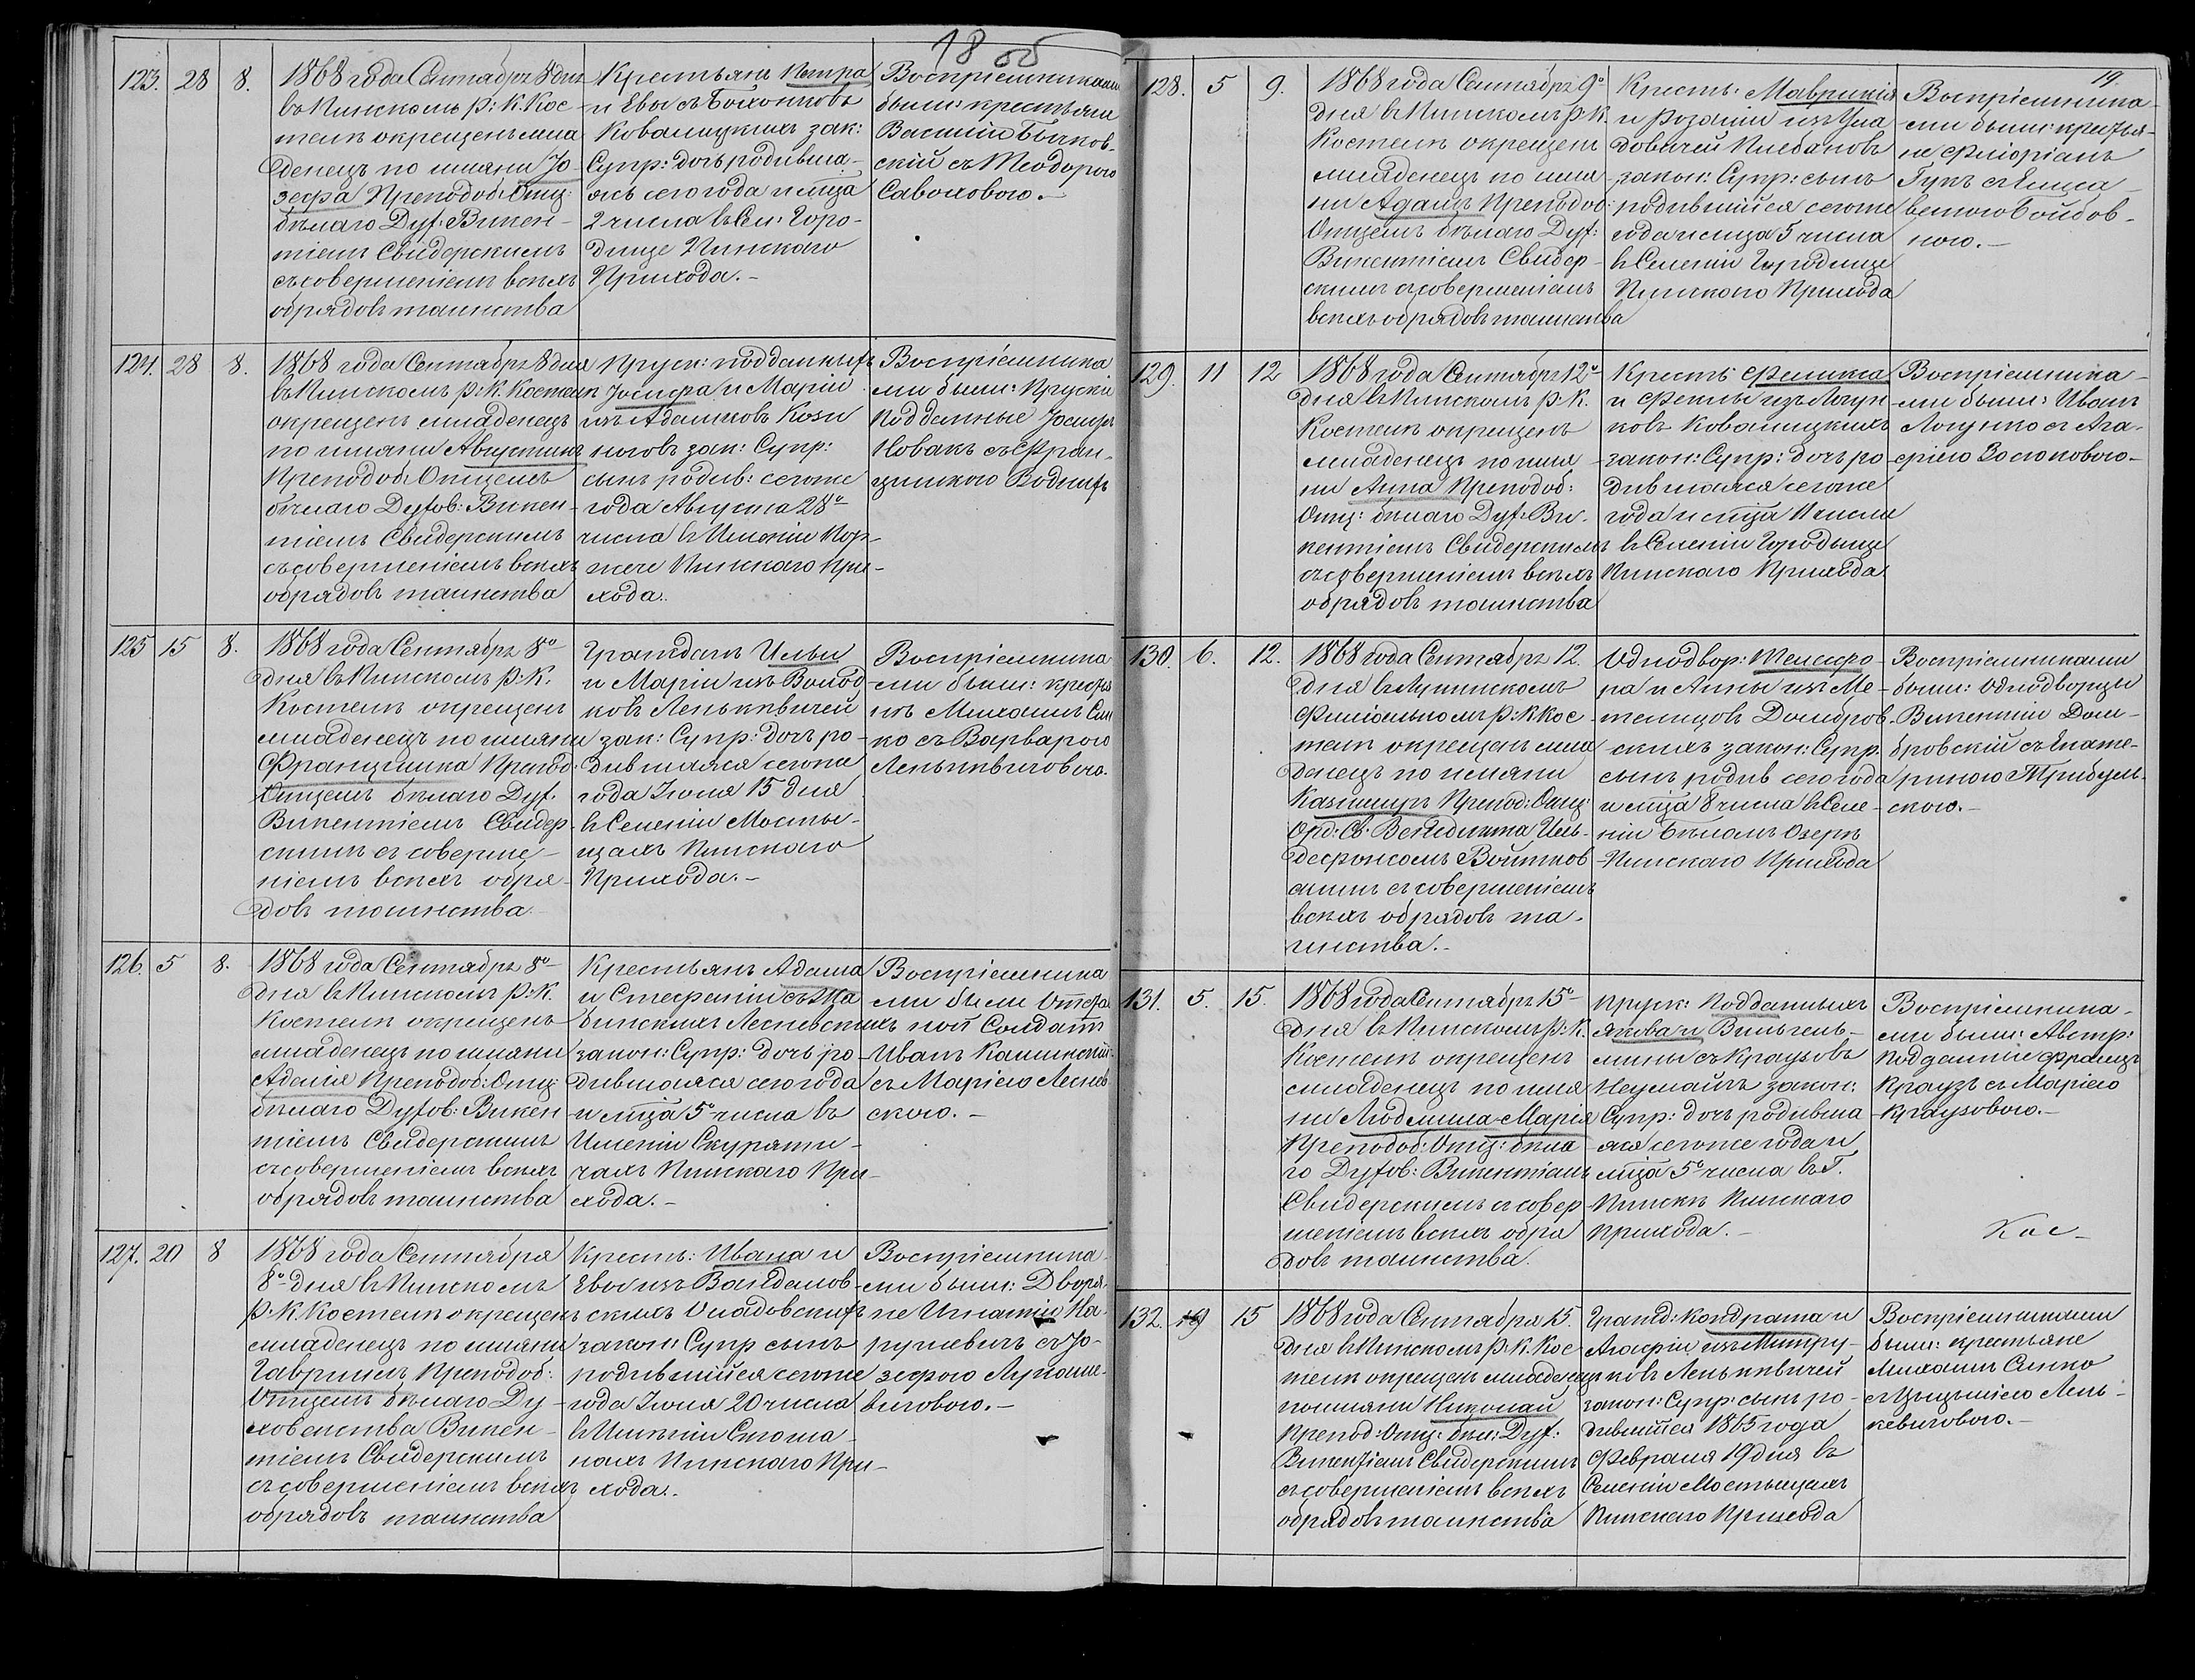 18 об
123. 28 8.
1868 года Сентября 8 дня
въ Пинскомъ Р: К. Кос-
телѣ окрещенъ мла
денецъ по имяни Іо
зефа Преподоб: Отц:
бѣлаго Дух: Викен-
тіемъ Свидерскимъ
съ совершеніемъ всѣхъ
обрядовъ таинства
Крестьянъ Петра
и Евы съ
Ковалицкихъ зак:
Супр: дочь родивша-
яся сего года и м-ца
2 числа въ Сел: Горо-
дище Пинскаго
Прихода.-
Воспріемниками
были: крестьяне
Василій Бычков-
скій съ Теодорою
Саволовою.-
124. 28 8.
1868 года Сентября 8 дня
въ Пинскомъ Р: К. Костелѣ
окрещенъ младенецъ
по имяни Августинъ
Преподоб: Отцемъ
бѣлаго Духов: Викен-
тіемъ Свидерскимъ
съ совершеніемъ всѣхъ
обрядовъ таинства
Пруск: подданныхъ
Іосифа и Маріи
изъ Адамковъ Кози
ноговъ зак: Супр:
сынъ родив: сегоже
года Августа 28о
числа въ Имѣніи Пор-
жече Пинскаго При-
хода.
Воспріемника
ми были: Пруски
Подданные Іосифъ
Новакъ съ Фран-
цишкою Водникъ
125 15 8.
1868 года Сентября 8о
дня въ Пинскомъ Р: К.
Костелѣ окрещенъ
младенецъ по имяни
Францишка Препод:
Отцемъ бѣлаго Дух.
Викентіемъ Свидер-
скимъ съ соверше-
ніемъ всѣхъ обря-
довъ таинства.
Граждан Ильи
и Маріи изъ Волод
ковъ Ленькѣвичей
зак: Супр: дочь ро-
дившаяся сегоже
года Іюля 15 дня
въ Селеніи Мосты-
щахъ Пинскаго
Прихода.-
Воспріемника
ми были: крестья
нъ Михаилъ Син
ко съ Варварою
Ленькѣвичовою.
126. 5 8.
1868 года Сентября 8о
дня въ Пинскомъ Р: К.
Костелѣ окрещенъ
младенецъ по имяни
Аделія Преподоб: Отц:
бѣлаго Духов: Викен
тіемъ Свидерскимъ
съ совершеніемъ всѣхъ
обрядовъ таинства
Крестьянъ Адама
и Стефаніи съ Жа
бинскихъ Лесневскихъ
закон: Супр: дочь ро-
дившаяся сего года
и м-ца 5о числа въ
Имѣніи Скуряти-
чахъ Пинскаго При-
хода.-
Воспріемника
ми были Отстав
ной Солдатъ
Иванъ Калинскій
съ Маріею Леснев
скою.-
127. 20 8
1868 года Сентября
8о дня въ Пинскомъ
Р: К. Костелѣ окрещенъ
младенецъ по имяни
Гавріилъ Преподоб:
Отцемъ бѣлаго Ду-
ховенства Викен-
тіемъ Свидерскимъ
съ совершеніемъ всѣхъ
обрядовъ таинства
Крест: Ивана и
Евы изъ Богданов-
скихъ Оладовскихъ
закон: Супр сынъ
родившійся сегоже
года Іюля 20 числа
въ Имѣніи Стоша-
нахъ Пинскаго При-
хода.
Воспріемника
ми были: Дворя-
не Игнатій На-
рушевичъ съ Іо-
зефою Лукаше-
вичовою.-
19.
128. 5 9.
1868 года Сентября 9о
дня въ Пинскомъ Р: К.
Костелѣ окрещенъ
младенецъ по имя
ни Адамъ Преподоб:
Отцемъ бѣлаго Дух:
Викентіемъ Свидер-
скимъ съ совершеніемъ
всѣхъ обрядовъ таинства
Кресть: Маврикія
и Розаліи изъ Гла
довичей Плебановъ
закон: Супр: сынъ
родившійся сегоже
года и м-ца 5 числа
въ Селеніи Городище
Пинскаго Прихода
Воспріемника-
ми были: крестья-
не Флоріанъ
Гукъ съ Елиса-
ветою Бойдов-
ною.-
129. 11 12
1868 года Сентября 12о
дня въ Пинскомъ Р: К.
Костелѣ окрещенъ
младенецъ по имя-
ни Анна Преподоб:
Отц: бѣлаго Дух: Ви-
кентіемъ Свидерскимъ
съ совершеніемъ всѣхъ
обрядовъ таинства
Кресть: Феликса
и Феклы изъ Логун
ковъ Ковалицкихъ
закон: Супр: дочь ро-
дившаяся сегоже
года и м-ца 11 числа
въ Селеніи Городище
Пинскаго Прихода.
Воспріемника-
ми были: Иванъ
Логунко съ Ага-
фіею Зосюковою-
130. 6. 12.
1868 года Сентября 12.
дня въ Лунинскомъ
Филіальномъ Р: К Кос-
телѣ окрещенъ мла
денецъ по имяни
Казимиръ Препод: Отц:
Орд: Св: Венедикта Иль-
дефонсомъ Войтков-
скимъ съ совершеніемъ
всѣхъ обрядовъ та-
инства.-
Однодвор: Телесфо-
ра и Анны изъ Ме-
телицовъ Домбров-
скихъ закон: Супр.
сынъ родив сего года
и м-ца 8 числа въ Селе-
ніи Бѣломъ Озерѣ
Пинскаго Прихода
Воспріемниками
были: Однодворцы
Викентій Дом-
бровскій съ Екате-
риною Трибуль-
скою.-
131. 5. 15.
1868 года Сентября 15о
дня въ Пинскомъ Р: К.
Костелѣ окрещенъ
младенецъ по имя
ни Людмила-Марія
Преподоб: Отц: бѣла
го Духов: Викентіемъ
Свидерскимъ съ совер-
шеніемъ всѣхъ обря
довъ таинства.
Пруск: Подданныхъ
Якова и Вильгель-
мины съ Краузовъ
Неуманъ закон:
Супр: дочь родивша
яся сегоже года и
м-ца 5о числа въ Г.
Пинскѣ Пинскаго
Прихода.-
Воспріемника-
ми были: Австр:
Подданніи Францъ
Краузъ съ Маріею
Краузовою.-
132. 19 15
1868 года Сентября 15.
дня въ Пинскомъ Р: К. Кос
телѣ окрещенъ младенецъ
по имяни Николай
Препод: Отц: бѣл: Дух:
Викентіемъ Свидерскимъ
съ совершеніемъ всѣхъ
обрядовъ таинства
Гражд: Кондрата и
Агафіи изъ Митру-
ковъ Ленькѣвичей
закон: Супр: сынъ ро-
дившійся 1865 года
Февраля 19 дня въ
Селеніи Мостыщахъ
Пинскаго Прихода
Воспріемниками
были: крестьяне
Михаилъ Синко
съ Цыцыліею Лень-
кевичовою.-